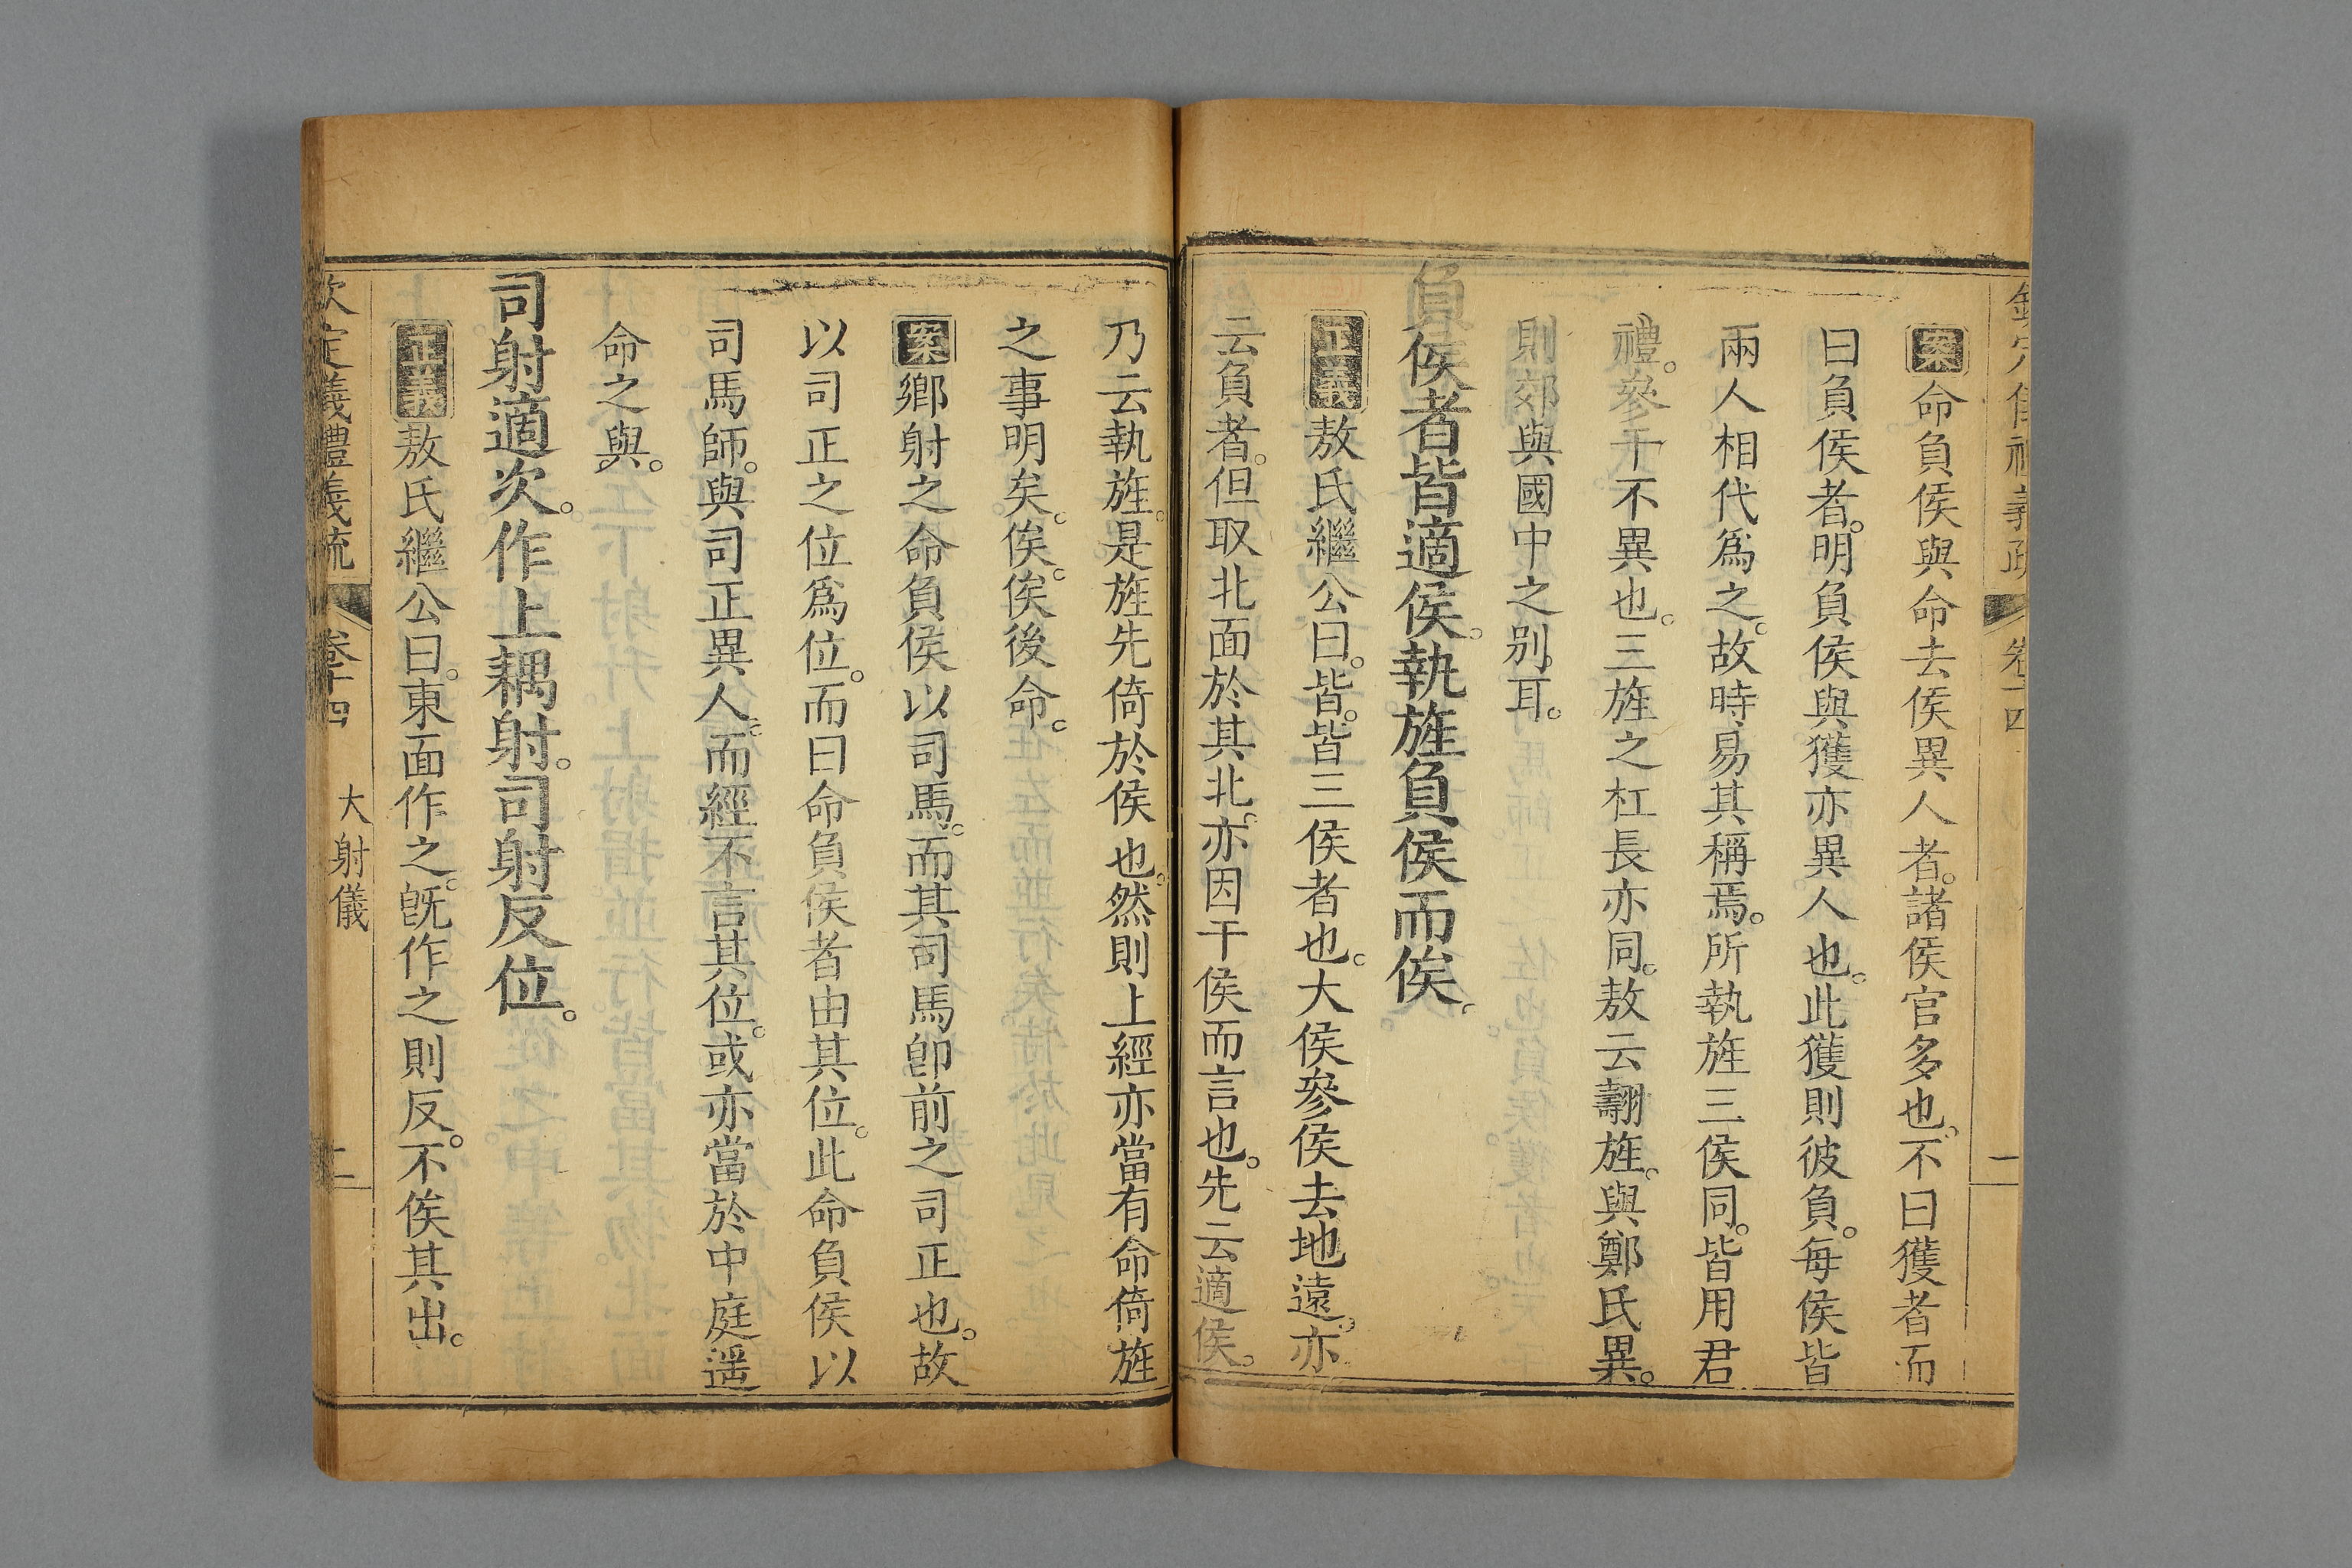 欽定儀禮義疏 卷十四 一
案命負侯與命去侯異人者。諸侯官多也。不曰獲者而
曰負侯者。明負侯與獲亦異人也。此獲則彼負。每侯皆
兩人相代爲之。故時易其稱焉。所執旌三侯同。皆用君
禮。參干不異也。三旌之杠長亦同。敖云翿旌。與鄭氏異。
則郊與國中之别耳。
負侯者皆適侯。執旌負侯而俟。
正義敖氏繼公曰。皆。皆三侯者也。大侯參侯去地遠。亦
云負者。但取北面於其北。亦因干侯而言也。先云適侯。
乃云執旌。是旌先倚於侯也。然則上經亦當有命倚旌
之事明矣。俟。俟後命。
案鄉射之命負侯以司馬。而其司馬卽前之司正也。故
以司正之位爲位。而曰命負侯者由其位。此命負侯以
司馬師。與司正異人。而經不言其位。或亦當於中庭遥
命之與。
司射適次。作上耦射。司射反位。
正義敖氏繼公曰。東面作之。旣作之則反。不俟其出。
欽定儀禮義疏 卷十四 大射儀 二